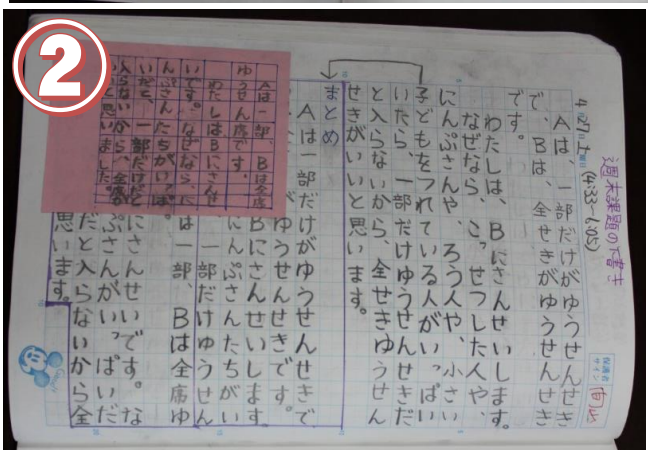 ②
週末課題の下書き
4月27日土曜日 (4:33~6:05)
Aは、一部だけがゆうせんせき
で、Bは、全せきがゆうせんせき
です。
わたしは、Bにさんせいします。
なぜなら、こっせつした人や、
にんぷさんや、ろう人や、小さい
子どもをつれている人がいっぱい
いたら、一部だけゆうせんせきだ
と入らないから、全せきゆうせん
せきがいいと思います。
まとめ
Aは一部だけがゆうせんせきで
がゆうせんせきです。
Bにさんせいします。
にんぷさんたちがい
一部だけゆうせん
は一部、Bは全席ゆ
にさんせいです。な
ぷさんがいっぱいだ
だと入らないから全
思います。
Aは一部、Bは全席
ゆうせん席です。
わたしはBにさんせ
いです。なぜなら、に
んぷさんたちがいっぱ
いだと、一部だけだと
入らないから、全席が
いいと思いました。
保護者
サイン